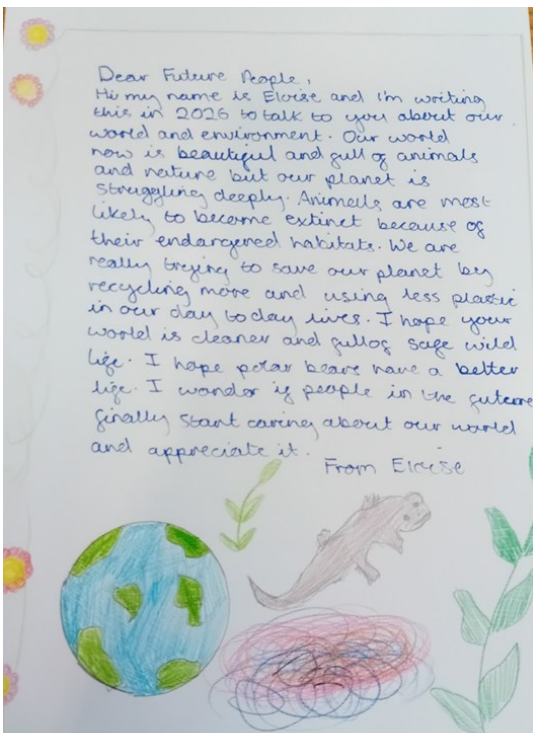 Dear Future People,
Hi my name is Eloise and I'm writing
this in 2026 to talk to you about our
world and environment. Our world
now is beautiful and full of animals
and nature but our planet is
struggling deeply. Animals are most
likely to become extinct because of
their endangered habitats. We are
really trying to save our planet by
recycling more and using less plastic
in our day to day lives. I hope your
world is cleaner and full of safe wild
life. I hope polar bears have a better
life. I wonder if people in the future
finally start caring about our world
and appreciate it.
From Eloise